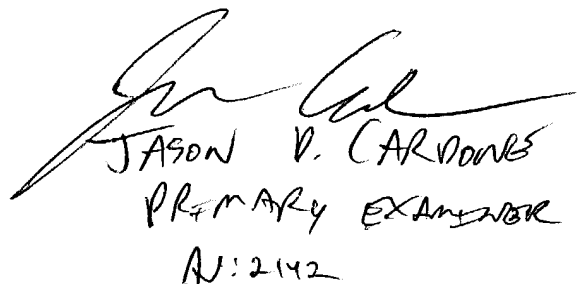 JASON D. CARDONE
PRIMARY EXAMINER
AU: 2142